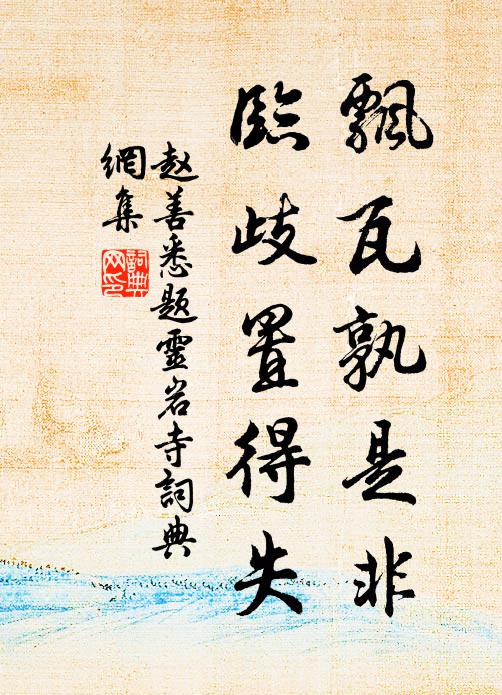 飄瓦孰是非
臨歧置得失
赵善悉題靈岩寺詞典
網集
詞典
网印